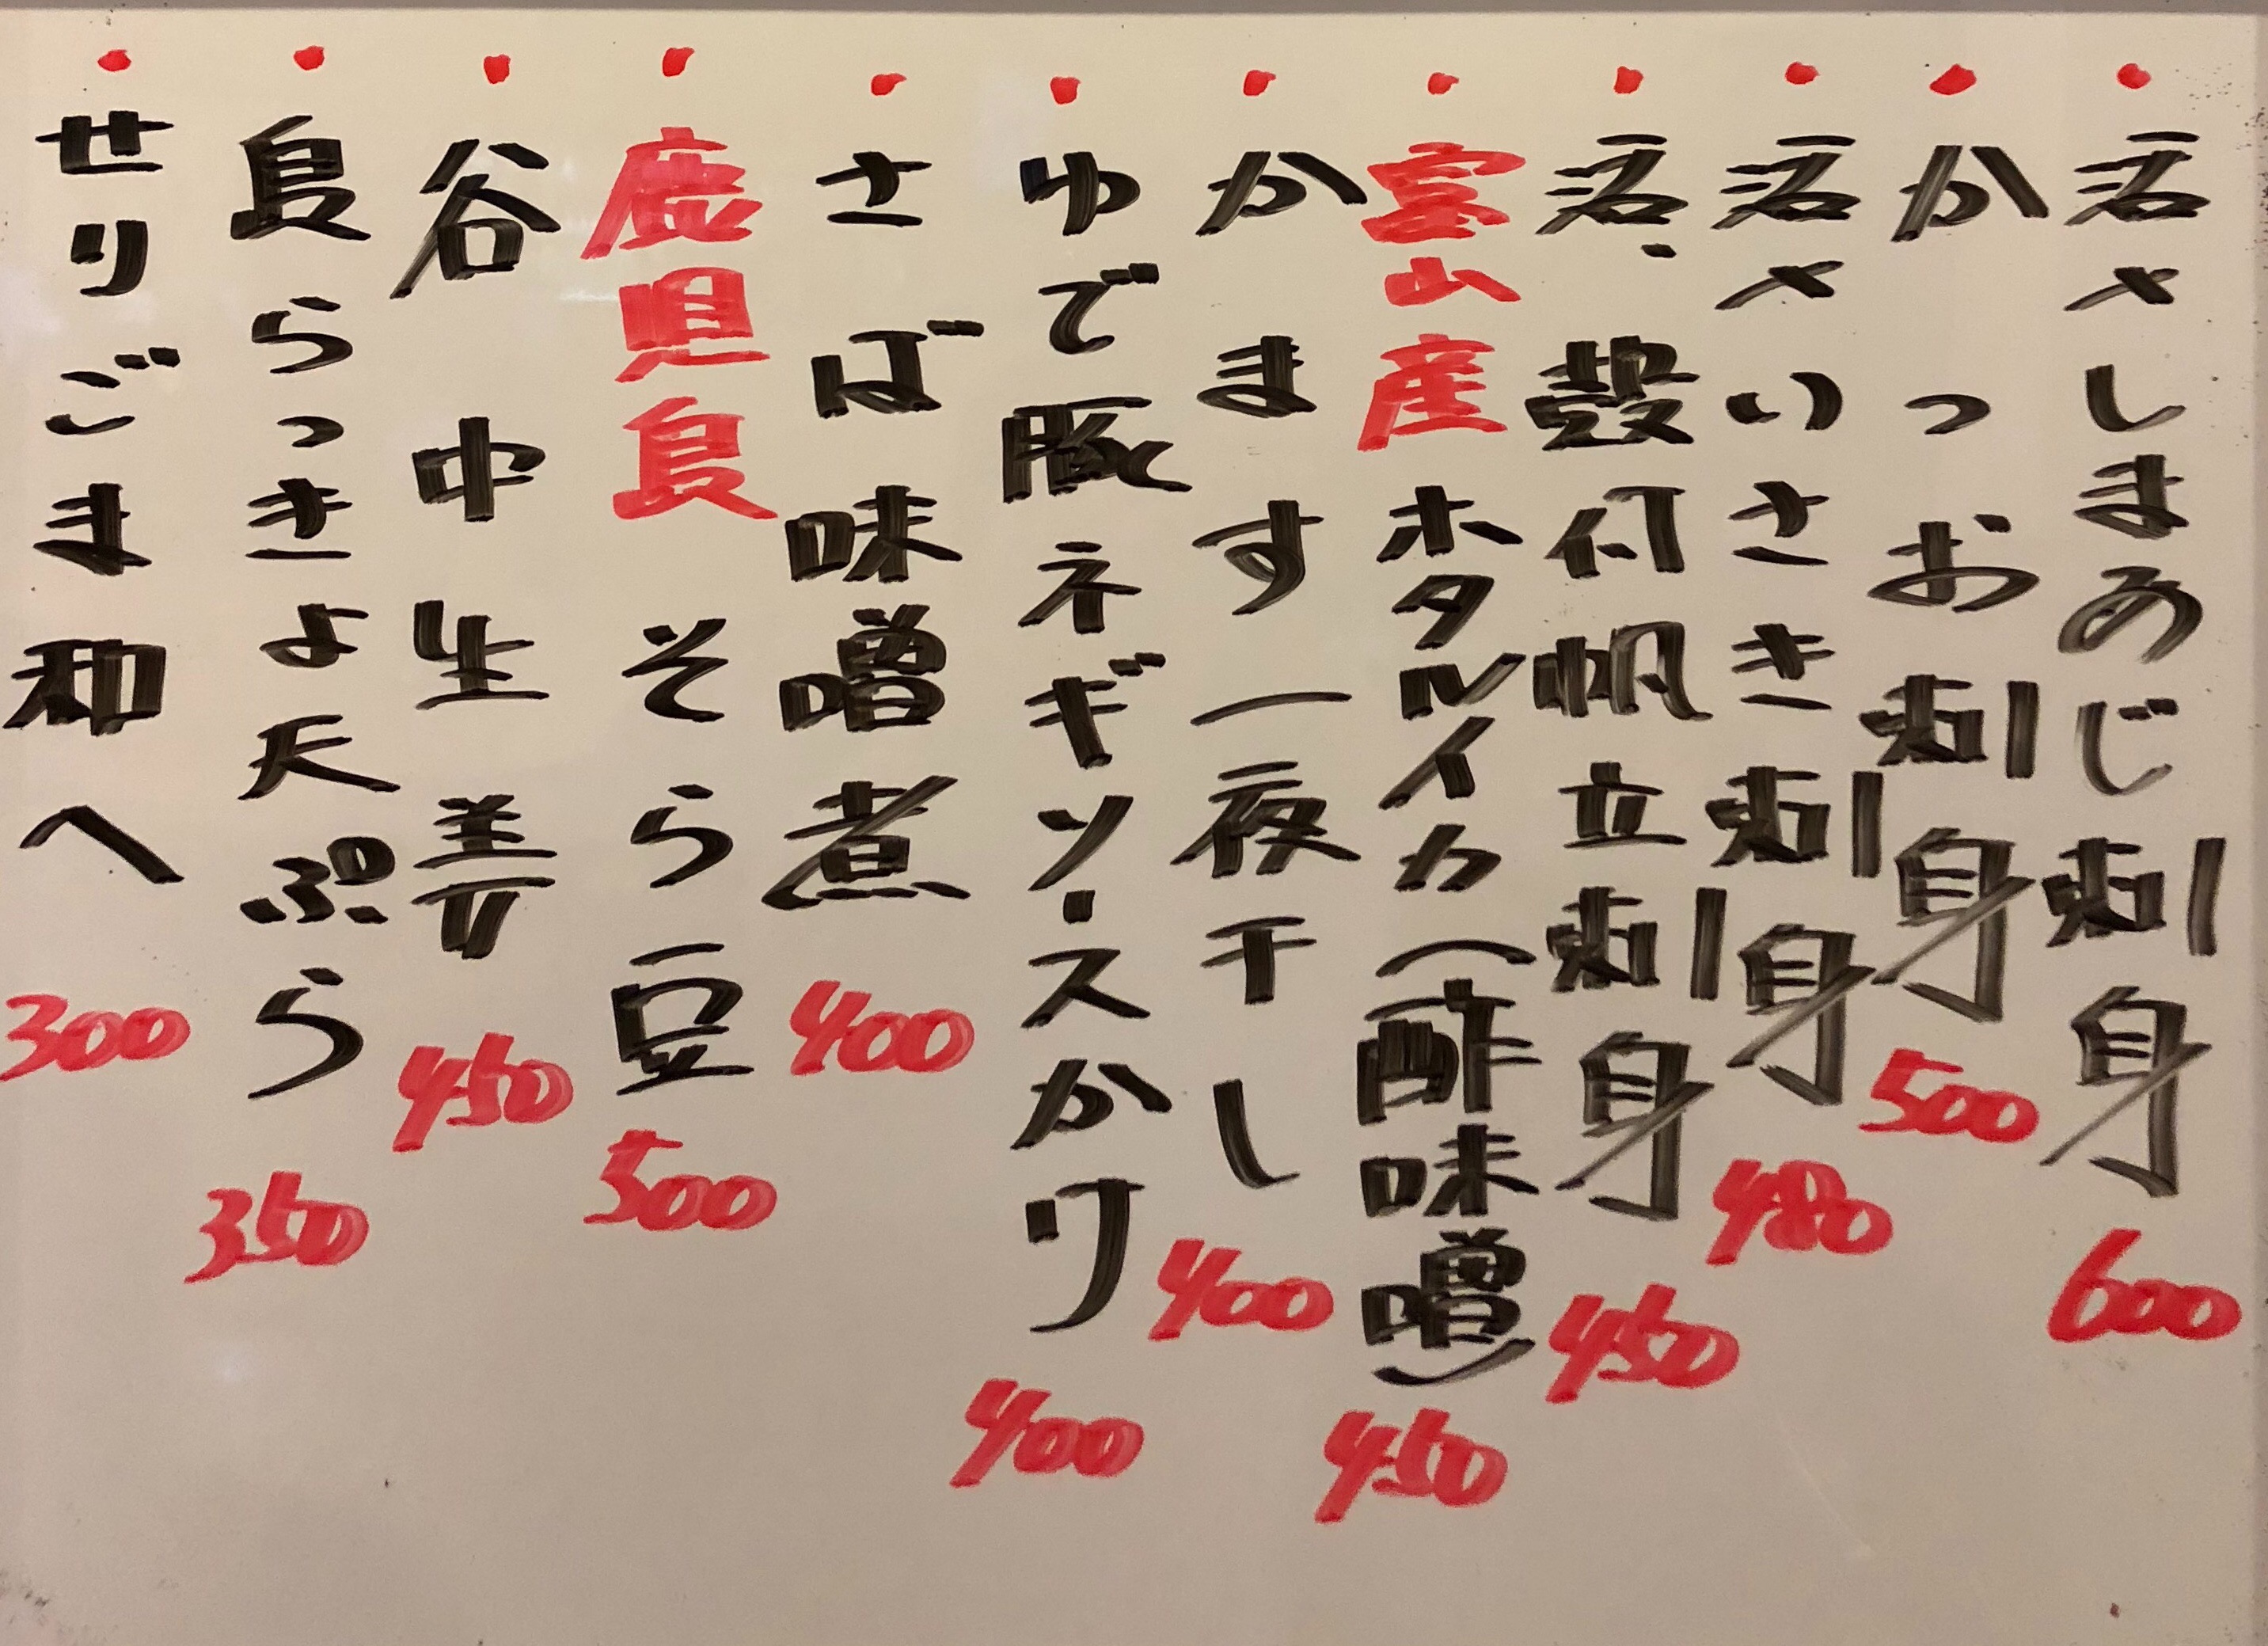 ・活〆しまあじ刺身 600
・かつお刺身 500
・活〆いさき刺身 480
・活、殻付帆立刺身 450
・富山産ホタルイカ(酢味噌) 450
・かます一夜干し 400
・ゆで豚ネギソースかけ 400
・さば味噌煮 400
・鹿児島そら豆 500
・谷中生姜 450
・島らっきょ天ぷら 350
・せりごま和へ 300